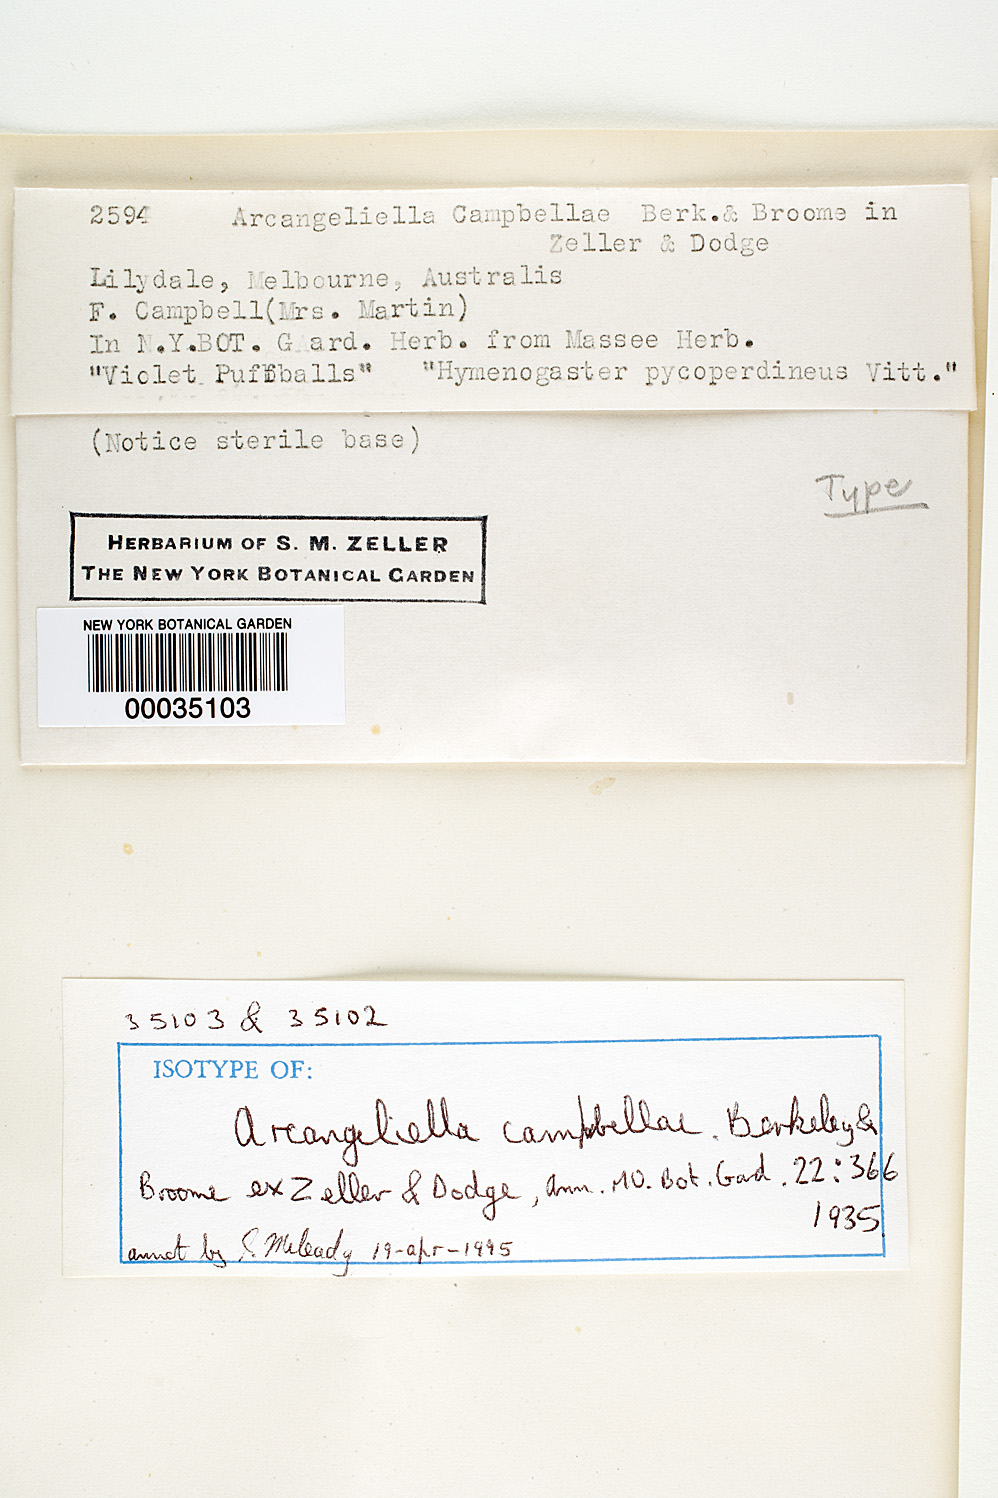 2594 Arcangeliella Campbellae Berk.& Broome in
Zeller & Dodge
Lilydale, Melbourne, Australis
F. Campbell(Mrs. Martin)
In N.Y.BOT. G ard. Herb. from Massee Herb.
"Violet Puffballs" "Hymenogaster pycoperdineus Vitt."
(Notice sterile base)
Type
HERBARIUM OF S. M. ZELLER
THE NEW YORK BOTANICAL GARDEN
NEW YORK BOTANICAL GARDEN
00035103
35103 & 35102
ISOTYPE OF:
Arcangeliella campbellae. Berkeley &
Broome ex Zeller & Dodge, Ann. MO. Bot. Gard. 22:366
1935
annot by 19-apr-1995